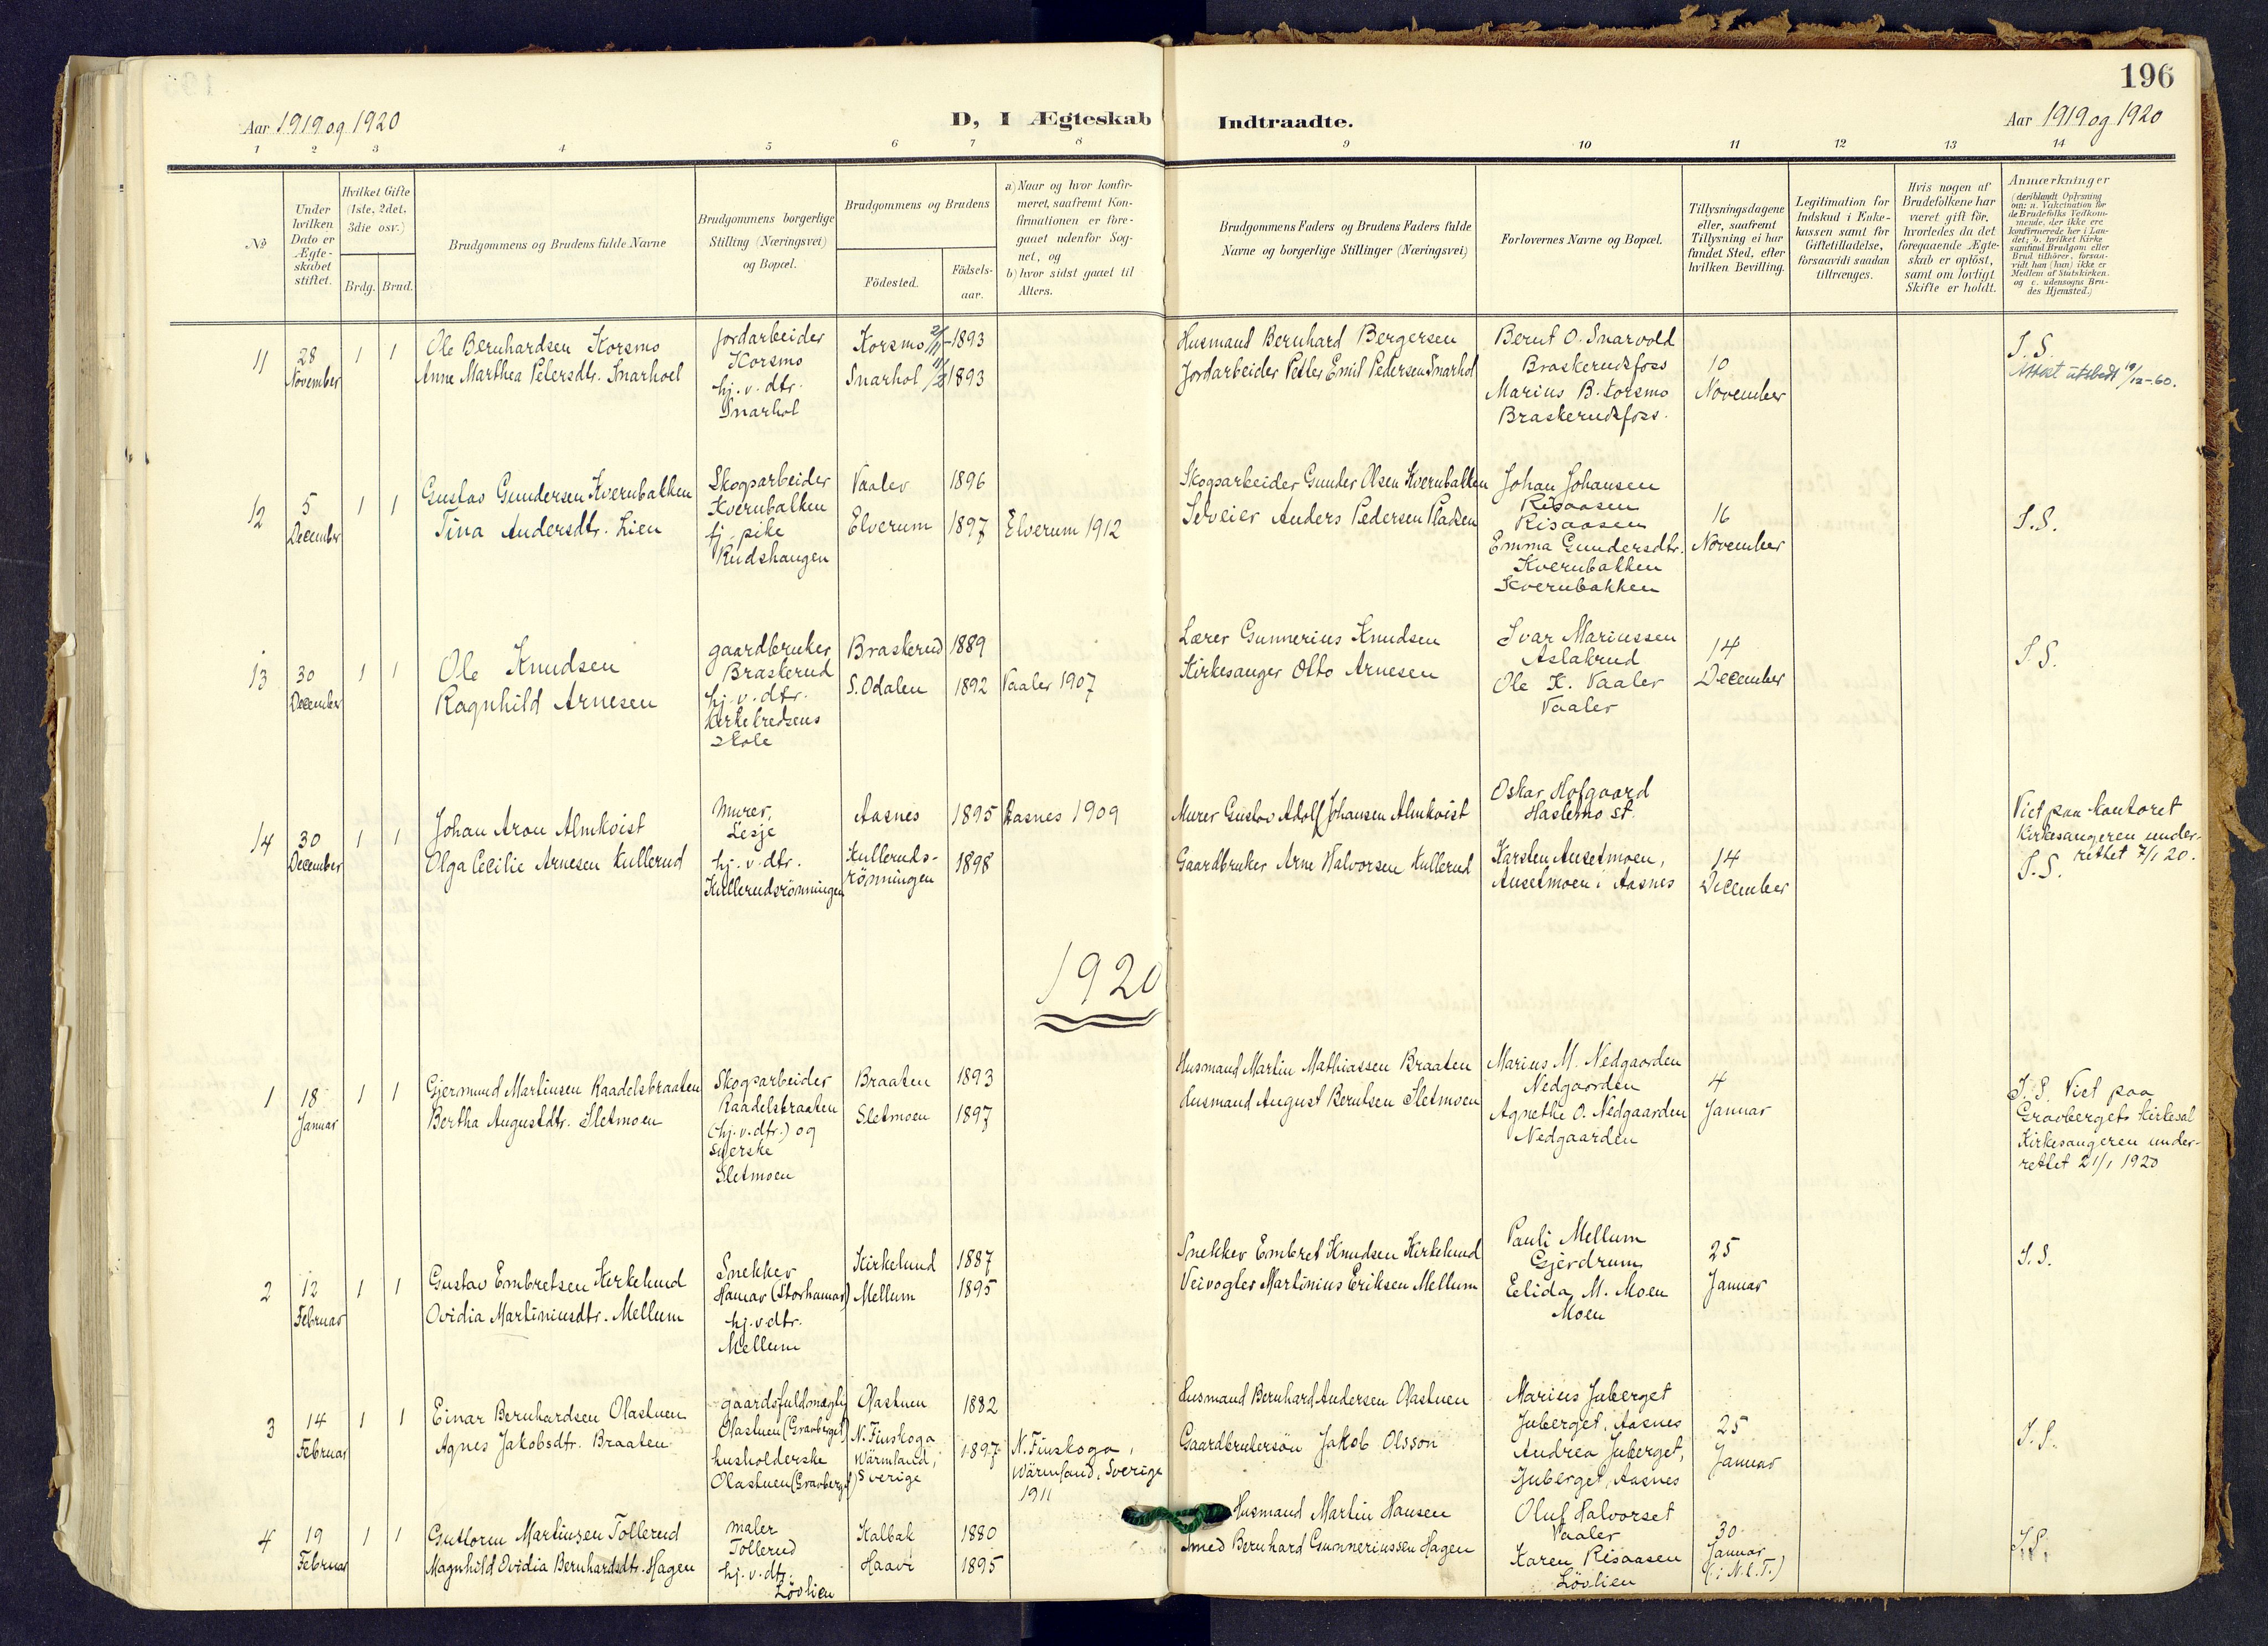 196
Aar 1919 og 1920
D, I Ægteskab Indtraadte.
Aar 1919 og 1920
1 2 3 4 5 6 7 8 9 10 11 12 13 14
No
Under hvilken Dato er Ægteskabet stiftet.
Hvilket Gifte (1ste, 2det, 3die osv.)
Brdg. Brud.
Brudgommens og Brudens fulde Navne
Brudgommens borgerlige Stilling (Næringsvei) og Bopæl.
Brudgommens og Brudens
Födested.
Födselsaar.
a) Naar og hvor konfirmeret, saafremt Konfirmationen er foregaaet udenfor Sognet, og
b) hvor sidst gaaet til Alters.
Brudgommens Faders og Brudens Faders fulde Navne og borgerlige Stillinger (Næringsvei)
Forlovernes Navne og Bopæl.
Tillysningsdagene eller, saafremt Tillysning ei har fundet Sted, efter hvilken Bevilling.
Legitimation for Indskud i Enkekassen samt for Giftetilladelse, forsaavidt saadan tiltrænges.
Hvis nogen af Brudefolkene har været gift för, hvorledes da det foregaaende Ægteskab er oplöst, samt om lovligt Skifte er holdt.
Anmærkninger
(deriblandt Oplysning om: a. Vakcination for de Brudefolks Vedkommende, der ikke ere konfirmerede her i Landet; b. hvilket Kirkesamfund Brudgom eller Brud tilhörer, forsaavidt han (hun) ikke er Medlem af Statskirken. og c. udensogns Brudes Hjemsted.)
11
28 November
1 1
Ole Bernhardsen Korsmo
Anne Marthea Petersdtr. Snarhoel
Jordarbeider
Korsmo
hj. v. dtr.
Snarhol
Korsmo 2/11-1893
Snarhol 1893
Husmand Bernhard Bergersen
Jordarbeider Petter Emil Pedersen Snarhol
Bernt O. Snarvold
Braskerudsfoss
Marius B. Korsmo
Braskerudsfoss.
10
November
S. S.
Attest utstedt 19/12-60.
12
5 December
1 1
Gustav Gundersen Kvernbakken
Tina Andersdtr. Lien
Skogsarbeider
Kvernbakken
tj. pike
Rudshaugen
Vaaler 1896
Elverum 1897
Elverum 1912
Skogsarbeider Gunder Olsen Kvernbakken
Selveier Anders Pedersen Pladsen
Johan Johansen
Risaasen
Risaasen
Emma Gundersdtr.
Kvernbakken
Kvernbakken
16
November
S.S.
13
30 December
1 1
Ole Knudsen
Ragnhild Arnesen
gaardbruker
Braskerud
hj. v. dtr.
Kirkekredsens
skole
Braskerud 1889
S. Odalen 1892
Vaaler 1907
Lærer Gunnerius Knudsen
Kirkesanger Otto Arnesen
Ivar Mariussen
Aslakrud
Ole K. Vaaler
Vaaler
14
December
S. S.
14
30 December
1 1
Johan Aron Almkvist
Olga Cecilie Arnesen Kullerud
Murer,
Lesje
hj. v. dtr.
Kullerudsrönningen
Aasnes 1895
Kullerudsrönningen 1898
Aasnes 1909
Murer Gustav Adolf Johansen Almkvist
Gaardbruker Arne Halvorsen Kullerud
Oskar Hofgaard
Haslemo st.
Karsten Auselmoen,
Auselmoen i Aasnes
14
December
Viet paa kontoret
Kirkesangeren underrettet 7/1 20.
S. S.
1920
1
18 Januar
1 1
Gjermund Martinsen Raadelsbraaten
Bertha Augustdtr. Sletmoen
Skogsarbeider
Raadelsbraaten
(hj. v. dtr.) og
syerske
Sletmoen
Braaten 1893
Sletmoen 1897
Husmand Martin Mathiassen Braaten
Husmand August Berntsen Sletmoen
Marius M. Nedgaarden
Nedgaarden
Agnethe O. Nedgaarden
Nedgaarden
4
Januar
S. S. Viet paa
Gravbergets kirkesal
Kirkesangeren underrettet 21/1 1920
2
12 Februar
1 1
Gustav Embretsen Kirkelund
Ovidia Martiniusdtr. Mellum
Snekker
Hamar (Storhamar)
hj. v. dtr.
Mellum
Kirkelund 1887
Mellum 1895
Snekker Embret Knudsen Kirkelund
Veivogter Martinius Eriksen Mellum
Pauli Mellum
Gjerdrum
Eelida M. Moen
Moen
25
Januar
S. S.
3
14 Februar
1 1
Einar Bernhardsen Olastuen
Agnes Jakobsdtr. Braaten
gaardsfuldmægtig
Olastuen (Gravberget)
husholderske
Olastuen (Gravberget)
Olastuen 1882
N. Finskoga
Wärmland,
Sverige 1897
N. Finskoga,
Wärmland, Sverige
1911
Husmand Bernhard Andersen Olastuen
Gaardbrukersön Jakob Olsson
Marius Juberget
Juberget, Aasnes
Andrea Juberget,
Juberget, Aasnes
25
Januar
S. S.
4
19 Februar
1 1
Guttorm Martinsen Tollerud
Magnhild Ovidia Bernhardsdtr. Hagen
maler
Tollerud
hj. v. dtr.
Lövlien
Kalbak 1880
Haavi 1895
Husmand Martin Hansen
Smed Bernhard Gunneriussen Hagen
Oluf Halvorset
Vaaler
Karen Risaasen
Lövlien
30
Januar
(i N. E. T.)
S. S.